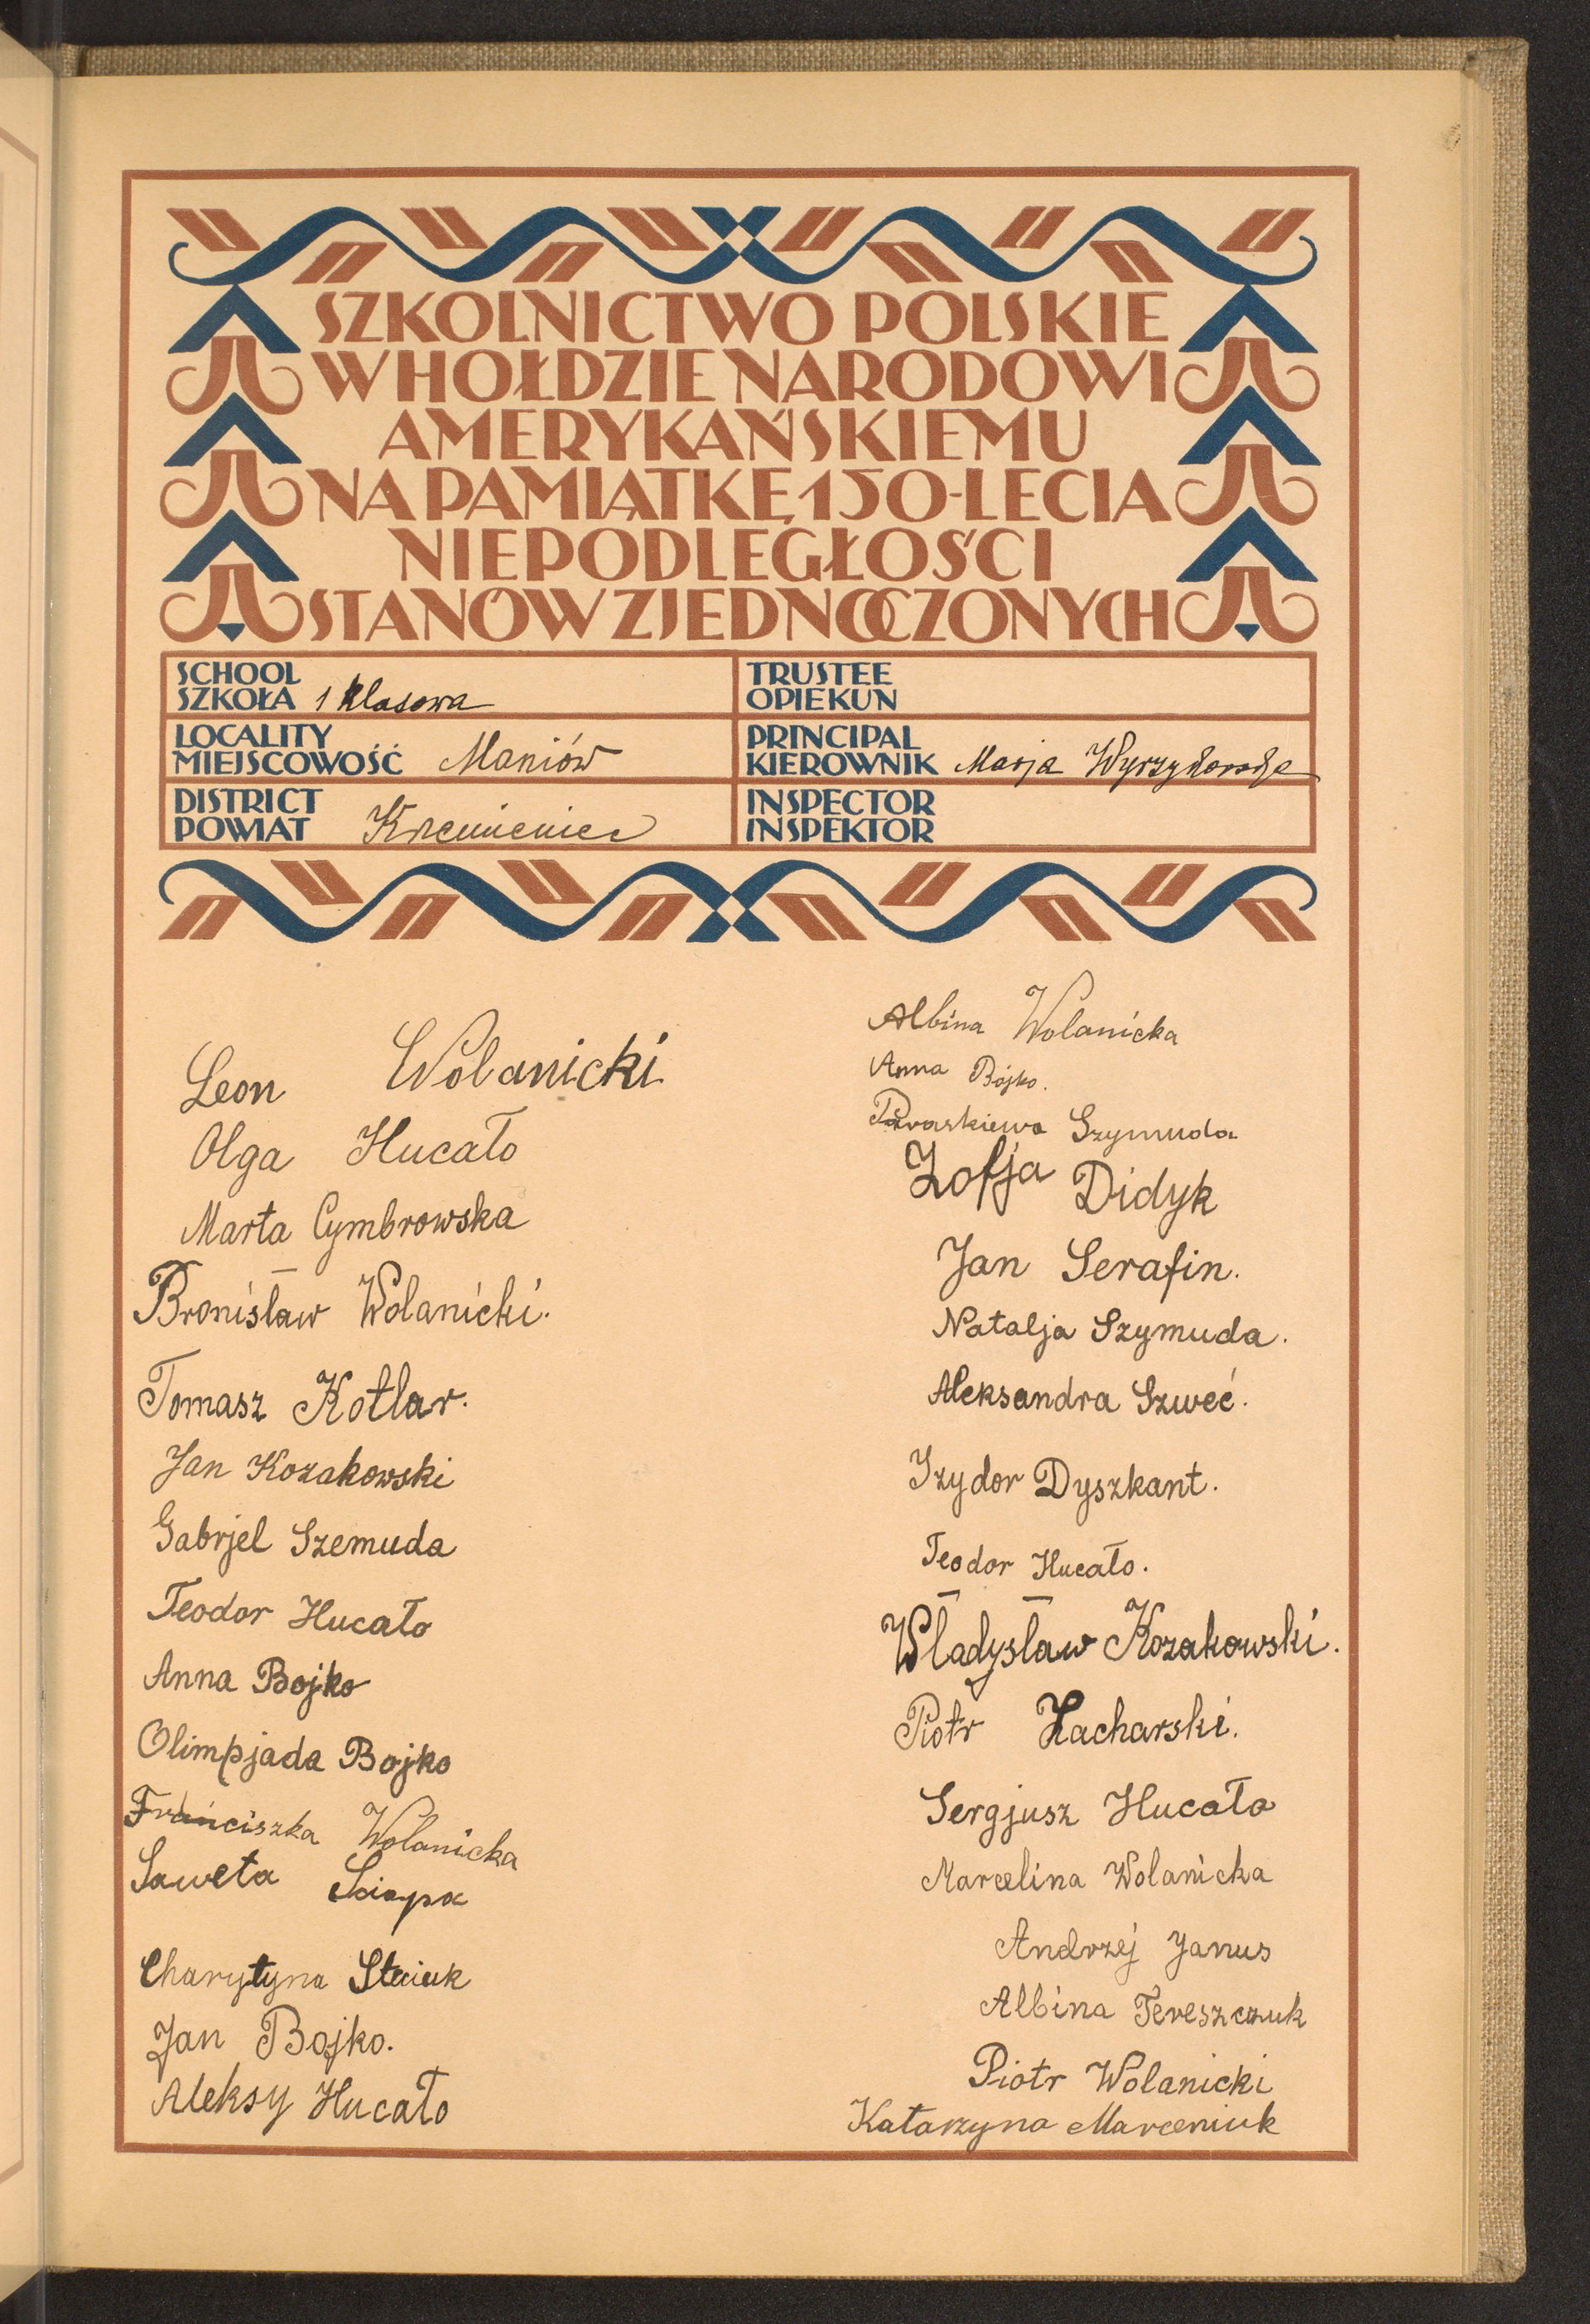 SZKOLNICTWO POLSKIE
W HOŁDZIE NARODOWI
AMERYKAŃSKIEMU
NA PAMIĄTKĘ 150-LECIA
NIEPODLEGŁOŚCI
STANÓW ZJEDNOCZONYCH
SCHOOL
SZKOŁA 1 klasowa
TRUSTEE
OPIEKUN
LOCALITY
MIEJSCOWOŚĆ Maniów
PRINCIPAL
KIEROWNIK Marja
DISTRICT
POWIAT Krzemieniec
INSPECTOR
INSPEKTOR
Leon Wolanicki
Olga Hucało
Marta Cymbrowska
Bronisław Wolanicki.
Tomasz Kotlar.
Jan Kozakowski
Gabrjel Szemuda
Teodor Hucało
Anna Bojko
Olimpjada Bojko
Franciszka Wolanicka
Saweta
Charytyna
Jan Bojko.
Aleksy Hucało
Albina Wolanicka
Anna Bojko.
Paraskiewa Szymuda
Zofja Didyk
Jan Serafin.
Natalja Szymuda.
Aleksandra Szweć.
Izydor Dyszkant.
Teodor Hucało.
Władysław Kozakowski.
Piotr Zacharski.
Sergjusz Hucało
Marcelina Wolanicka
Andrzej Janus
Albina Tereszczuk
Piotr Wolanicki
Katarzyna Marceniuk